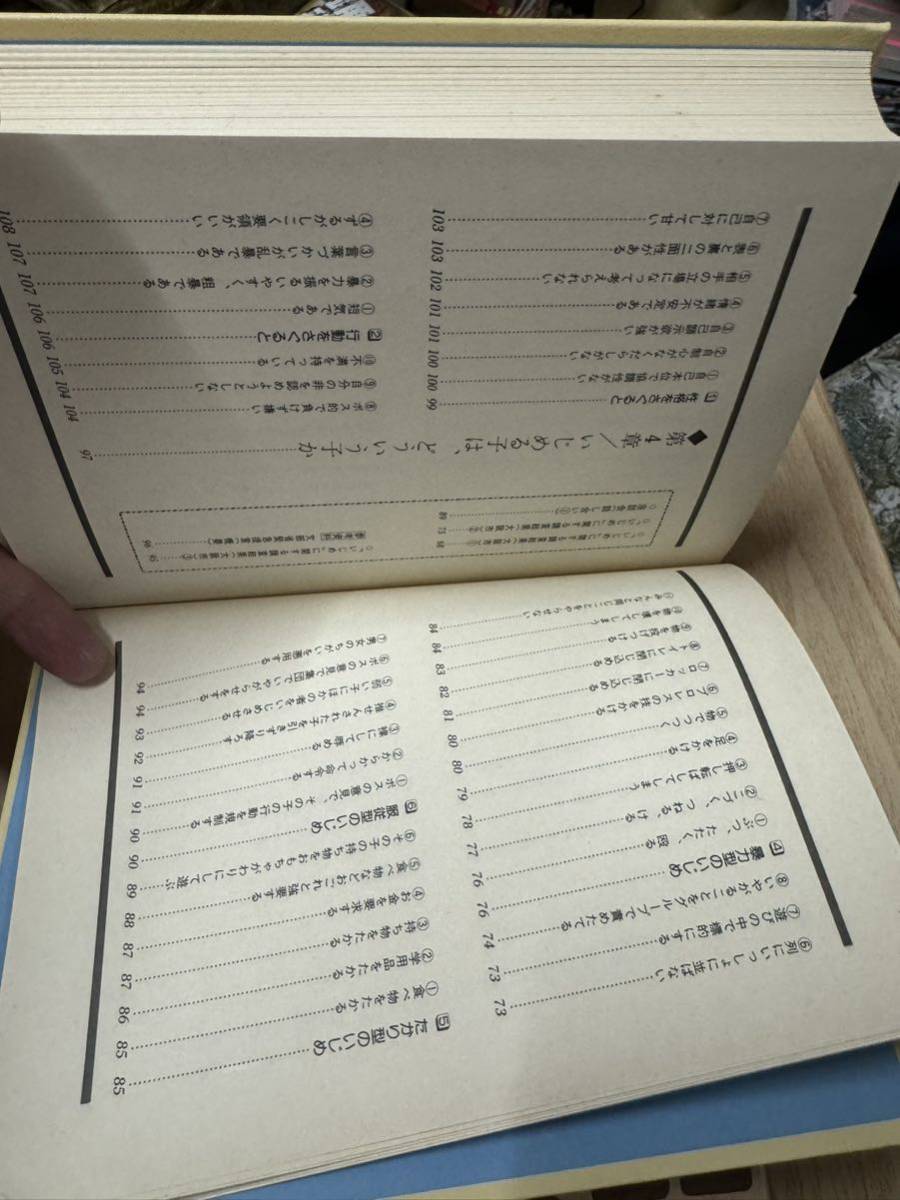 ⑥列にいっしょに並ばない……73
⑦遊びの中で標的にする……73
⑧いやがることをグループで責めたてる……74
4 暴力型のいじめ……76
①ぶつ、たたく、殴る……76
②こづく、つねる、ける……77
③押し転ばしてしまう……78
④足をかける……79
⑤物でつつく……80
⑥プロレスの技をかける……80
⑦ロッカーに閉じ込める……81
⑧トイレに閉じ込める……82
⑨物を投げつける……83
⑩物を壊してしまう……84
⑪みんなと同じことをやらせない……84
5 たかり型のいじめ……85
①食べ物をたかる……85
②学用品をたかる……86
③持ち物をたかる……87
④お金を要求する……87
⑤食べ物などおごれと強要する……88
⑥その子の持ち物をおもちゃがわりにして遊ぶ……89
6 服従型のいじめ……90
①ボスの意見で、その子の行動を規制する……90
②からかって命令する……91
③裸にして辱める……91
④推せんされた子を引きずり降ろす……92
⑤弱い子にほかの者をいじめさせる……93
⑥ボスの意見で集団でいやがらせをする……94
⑦男女のちがいを悪用する……94
○「いじめ」に関する調査結果(大阪市)①……68
○「いじめ」に関する調査結果(大阪市)②……73
話し合い……89
○「いじめ」に関する調査結果(大阪市)③……95
参考資料 文部省……96
◆第4章／いじめる子は、どういう子か……97
1 性格をさぐると……99
①自己本位で協調性がない……100
②自制心がなくだらしがない……100
③自己顕示欲が強い……101
④情緒が不安定である……101
⑤相手の立場になって考えられない……102
⑥表と裏の二面性がある……103
⑦自己に対して甘い……103
⑧ボス的で負けず嫌い……104
⑨自分の非を認めようとしない……104
⑩不満を持っている……105
2 行動をさぐると……106
①短気である……106
②暴力を振るいやすく、粗暴である……107
③言葉づかいが乱暴である……107
④ずるがしこく要領がいい……108